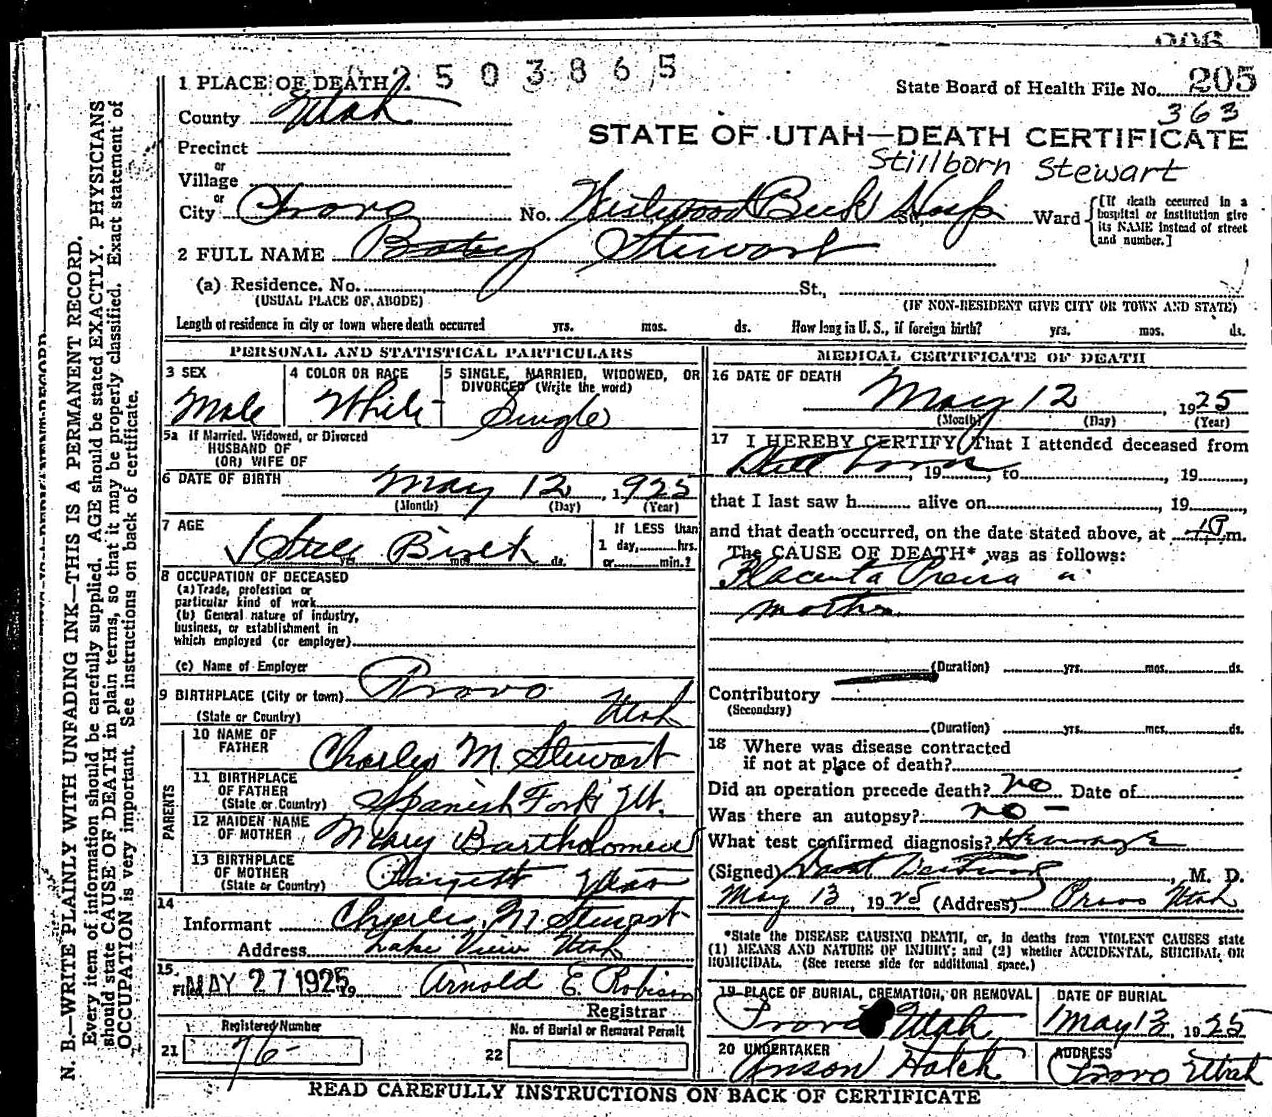 2503865
1 PLACE OF DEATH
State Board of Health File No. 205
363
County Utah
STATE OF UTAH—DEATH CERTIFICATE
Precinct
Stillborn Stewart
or
Village
or
City Provo No. Hosp St., Ward [If death occurred in a hospital or institution give its NAME instead of street and number.]
2 FULL NAME Stewart
(a) Residence. No. St.,
(USUAL PLACE OF ABODE) (IF NON-RESIDENT GIVE CITY OR TOWN AND STATE)
Length of residence in city or town where death occurred yrs. mos. ds. How long in U.S., if foreign birth? yrs. mos. ds.
PERSONAL AND STATISTICAL PARTICULARS
3 SEX
Male
4 COLOR OR RACE
White
5 SINGLE, MARRIED, WIDOWED, OR DIVORCED (Write the word)
Single
5a If Married, Widowed, or Divorced
HUSBAND OF
(OR) WIFE OF
6 DATE OF BIRTH May 12, 1925
(Month) (Day) (Year)
7 AGE
Still Birth
yrs. mos. ds.
If LESS than
1 day, hrs.
or min.?
8 OCCUPATION OF DECEASED
(a) Trade, profession or
particular kind of work
(b) General nature of industry,
business, or establishment in
which employed (or employer)
(c) Name of Employer
9 BIRTHPLACE (City or town) Provo
(State or Country) Utah
PARENTS
10 NAME OF
FATHER Charles M. Stewart
11 BIRTHPLACE
OF FATHER
(State or Country) Spanish Fork Ut.
12 MAIDEN NAME
OF MOTHER Mary Bartholomew
13 BIRTHPLACE
OF MOTHER
(State or Country) Utah
14
Informant Charles M. Stewart
Address Lake View Utah
15.
MAY 27 1925 19 Arnold E. Robison
Registrar
Registered Number
21 76
No. of Burial or Removal Permit
22
MEDICAL CERTIFICATE OF DEATH
16 DATE OF DEATH
May 12, 1925
(Month) (Day) (Year)
17 I HEREBY CERTIFY, That I attended deceased from
Still born, 19, to, 19
that I last saw h alive on, 19
and that death occurred, on the date stated above, at m.
The CAUSE OF DEATH* was as follows:
Placenta Previa in
mother
(Duration) yrs. mos. ds.
Contributory
(Secondary)
(Duration) yrs. mos. ds.
18 Where was disease contracted
if not at place of death?
Did an operation precede death? no Date of
Was there an autopsy? no
What test confirmed diagnosis?
(Signed), M. D.
May 13, 1925 (Address) Provo Utah
*State the DISEASE CAUSING DEATH, or, in deaths from VIOLENT CAUSES state
(1) MEANS AND NATURE OF INJURY; and (2) whether ACCIDENTAL, SUICIDAL OR
HOMICIDAL. (See reverse side for additional space.)
19 PLACE OF BURIAL, CREMATION, OR REMOVAL
Provo Utah
DATE OF BURIAL
May 13 1925
20 UNDERTAKER
Anson Hatch
ADDRESS
Provo Utah
READ CAREFULLY INSTRUCTIONS ON BACK OF CERTIFICATE
N. B.—WRITE PLAINLY WITH UNFADING INK—THIS IS A PERMANENT RECORD.
Every item of information should be carefully supplied. AGE should be stated EXACTLY. PHYSICIANS
should state CAUSE OF DEATH in plain terms, so that it may be properly classified. Exact statement of
OCCUPATION is very important. See instructions on back of certificate.